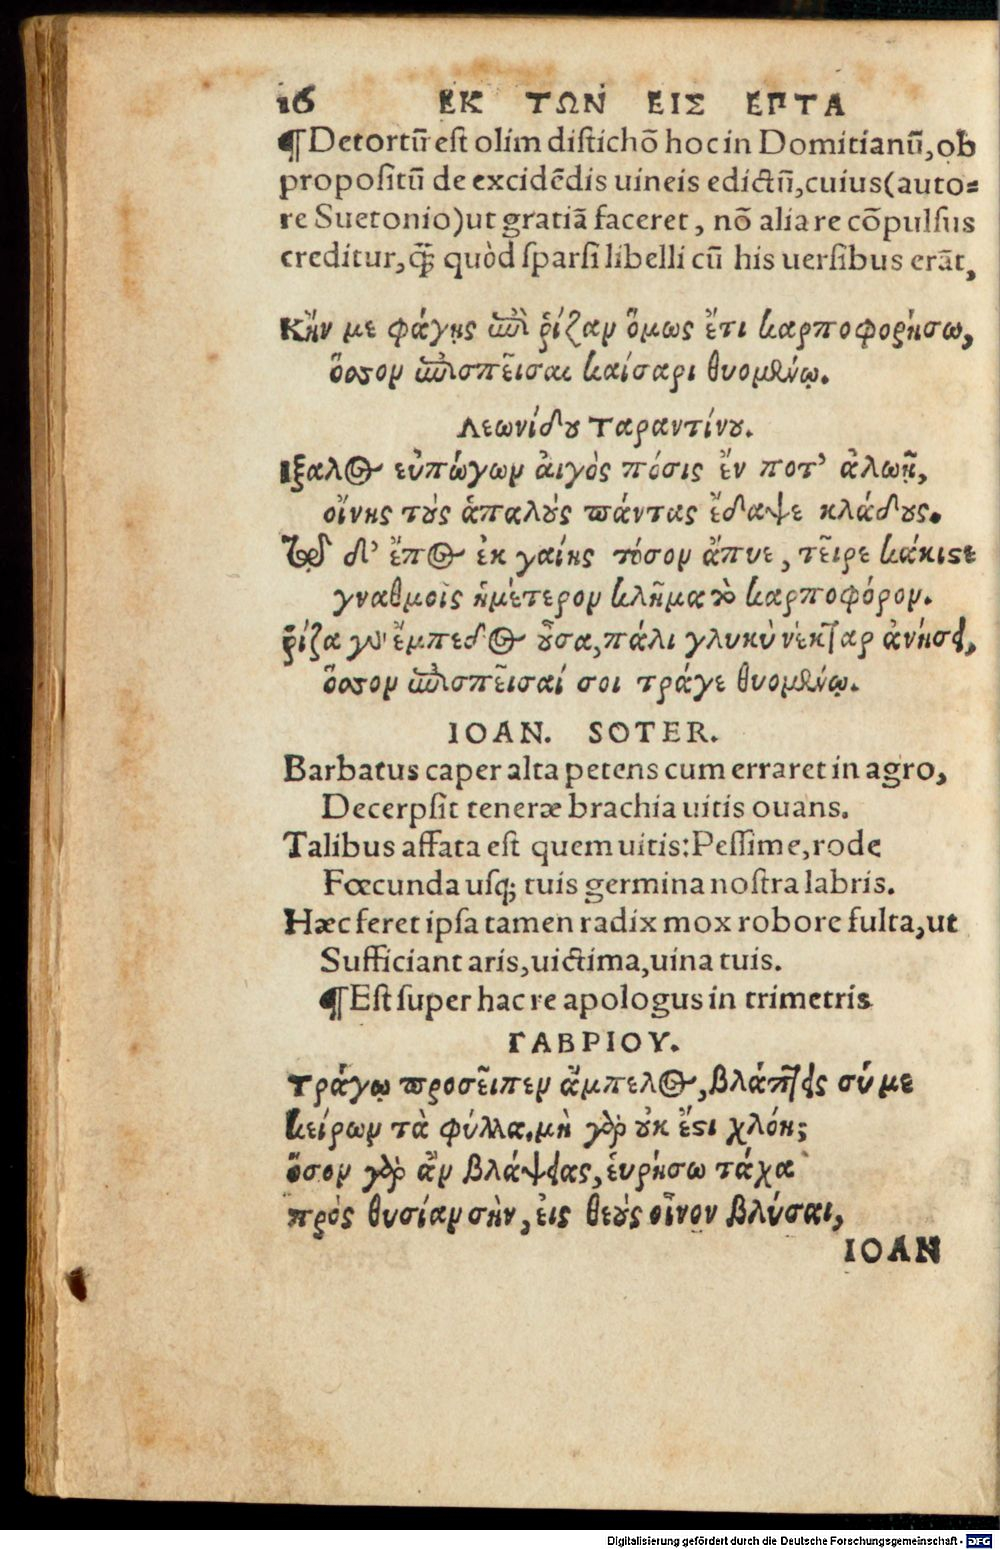 16 ΕΚ ΤΩΝ ΕΙΣ ΕΠΤΑ
¶Detortū est olim distichō hoc in Domitianū, ob
propositū de excidēdis uineis edictū, cuius (auto=
re Suetonio) ut gratiā faceret, nō alia re cōpulsus
creditur, q̄̃ quòd sparsi libelli cū his uersibus erāt,
Κἤν με φάγῃς ἐπὶ ῥίζαν ὅμως ἔτι καρποφορήσω,
ὅσσον ἐπισπεῖσαι καίσαρι θυομένῳ.
Λεωνίδου Ταραντίνου.
Ιξαλος εὐπώγων αἰγὸς πόσις ἔν ποτ’ ἀλωῇ,
οἴνης τοὺς ἁπαλοὺς πάντας ἔδαψε κλάδους.
Τῷ δ’ ἔπος ἐκ γαίης τόσον ἄπυε, κεῖρε κάκιστε
γναθμοῖς ἡμέτερον κλῆμα τὸ καρποφόρον.
ῥίζα γὰρ ἔμπεδος οὖσα, πάλι γλυκὺ νέκταρ ἀνήσει,
ὅσσον ἐπισπεῖσαί σοι τράγε θυομένῳ.
IOAN. SOTER.
Barbatus caper alta petens cum erraret in agro,
Decerpsit teneræ brachia uitis ouans.
Talibus affata est quem uitis: Pessime, rode
Fœcunda usq; tuis germina nostra labris.
Hæc feret ipsa tamen radix mox robore fulta, ut
Sufficiant aris, uictima, uina tuis.
¶Est super hac re apologus in trimetris
ΓΑΒΡΙΟΥ.
Τράγῳ προσεῖπεν ἄμπελος, βλάπτεις σύ με
κείρων τὰ φύλλα. μὴ γὰρ οὐκ ἔστι χλόη;
ὅσον γὰρ ἂν βλάψειας, εὑρήσω τάχα
πρὸς θυσίαν σὴν, εἰς θεοὺς οἶνον βλύσαι,
IOAN
Digitalisierung gefördert durch die Deutsche Forschungsgemeinschaft - DFG